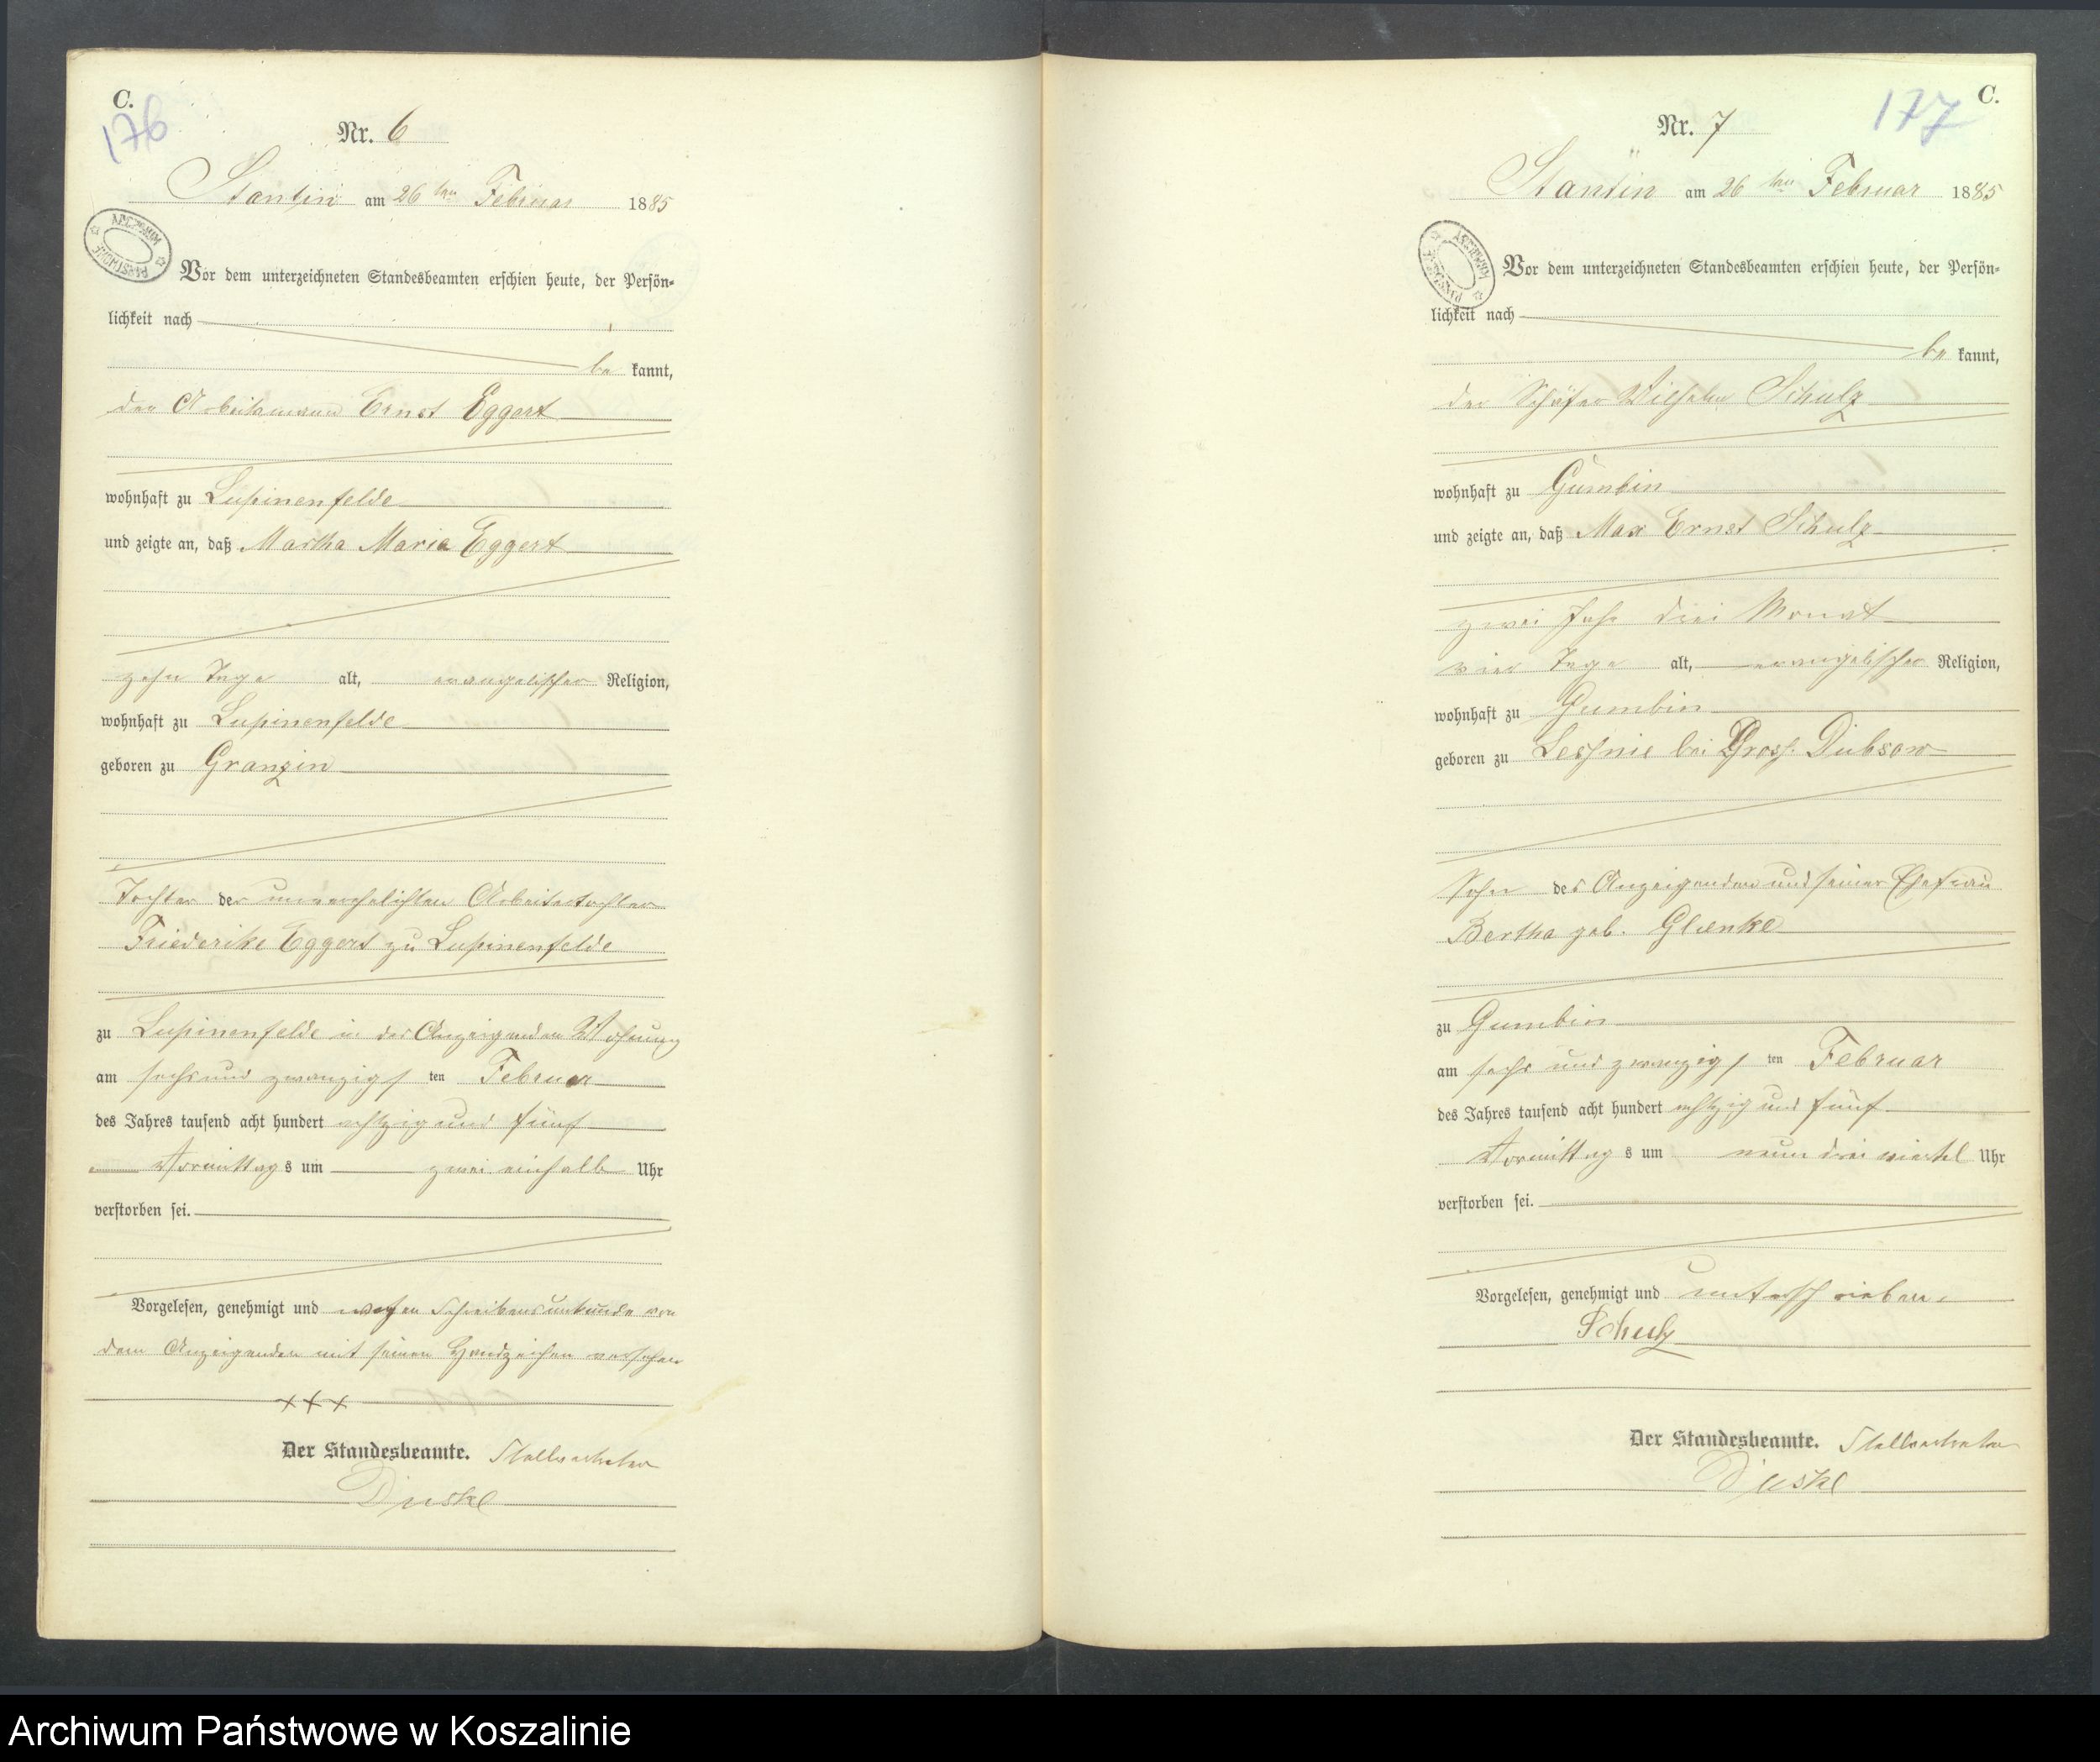 C.
176
Nr. 6
Stantin am 26ten Februar 1885
ARCHIWUM PAŃSTWOWE
Vor dem unterzeichneten Standesbeamten erschien heute, der Persön-
lichkeit nach
be kannt,
der Arbeitsmann Ernst Eggert
wohnhaft zu Lupinenfelde
und zeigte an, daß Martha Maria Eggert
zehn Tage alt, evangelischer Religion,
wohnhaft zu Lupinenfelde
geboren zu Granzin
Tochter der unverehelichten Arbeitertochter
Friederike Eggert zu Lupinenfelde
zu Lupinenfelde in des Anzeigenden Wohnung
am sechs und zwanzigs ten Februar
des Jahres tausend acht hundert achtzig und fünf
Vormittag s um zwei einhalb Uhr
verstorben sei.
Vorgelesen, genehmigt und wegen Schreibensunkunde von
dem Anzeigenden mit seinen Handzeichen versehen
+++
Der Standesbeamte. Stellvertreter
C.
177
Nr. 7
Stantin am 26ten Februar 1885
ARCHIWUM PAŃSTWOWE
Vor dem unterzeichneten Standesbeamten erschien heute, der Persön-
lichkeit nach
be kannt,
der Schäfer Wilhelm Schulz
wohnhaft zu Gumbin
und zeigte an, daß Max Ernst Schulz
zwei Jahr drei Monat
vier Tage alt, evangelischer Religion,
wohnhaft zu Gumbin
geboren zu Lessnie bei Gross Dübsow
Sohn des Anzeigenden und seiner Ehefrau
Bertha geb. Glienke
zu Gumbin
am sechs und zwanzigs ten Februar
des Jahres tausend acht hundert achtzig und fünf
Vormittag s um neun drei viertel Uhr
verstorben sei.
Vorgelesen, genehmigt und unterschrieben.
Schulz
Der Standesbeamte. Stellvertreter
Archiwum Państwowe w Koszalinie